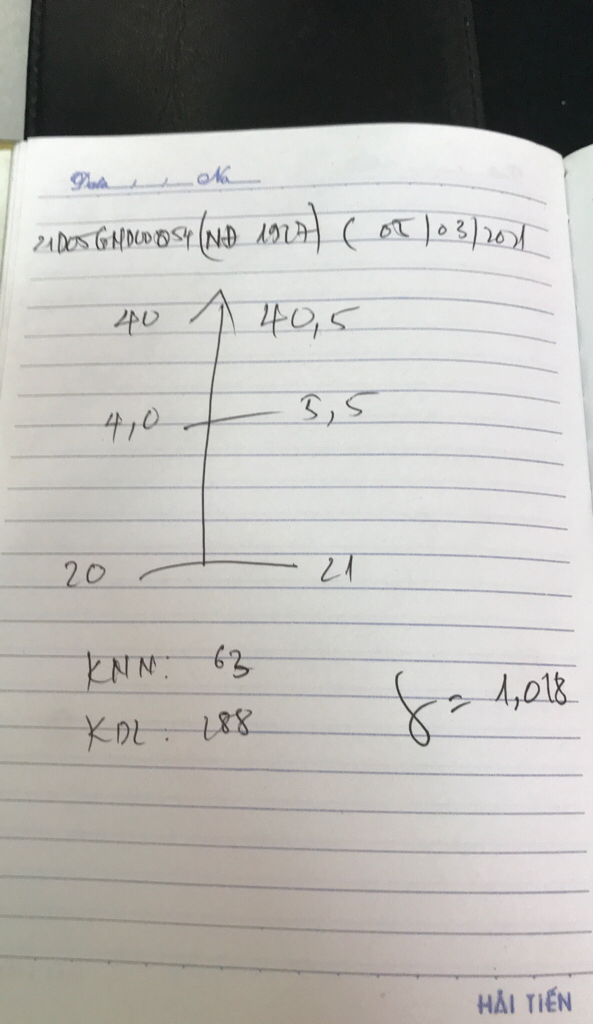 Date No
21D05GNDC00054 (NĐ 1927) ( 05/03/2021
40 40,5
4,0 3,5
20 21
KNN: 63
KDL: 188
γ = 1,018
HẢI TIẾN